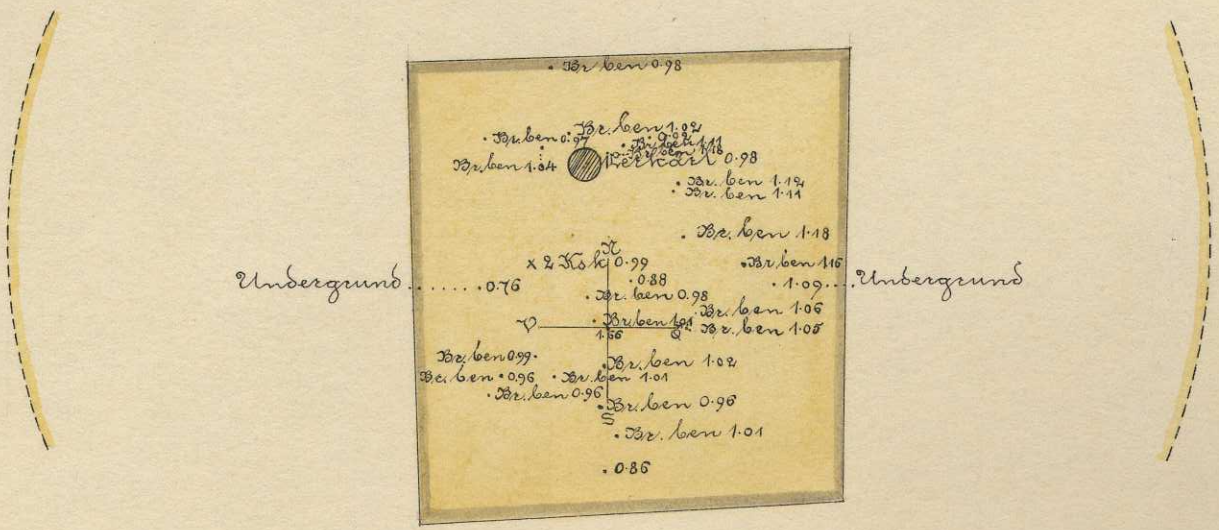 Br. ben 0.98
Br. ben 1.02
Br. ben 0.97
Br. ben 1.11
Br. ben 1.18
Br. ben 1.04
Lerkarl 0.98
Br. ben 1.12
Br. ben 1.11
Br. ben 1.18
N
x 2 Ksk 0.99
Br. ben 1.16
Undergrund
0.76
0.88
1.09
Undergrund
Br. ben 0.98
Br. ben 1.06
V
Br. ben 1.01
Ø
Br. ben 1.05
1.66
Br. ben 0.99
Br. ben 1.02
Br. ben 0.96
Br. ben 1.01
Br. ben 0.96
Br. ben 0.96
S
Br. ben 1.01
0.86